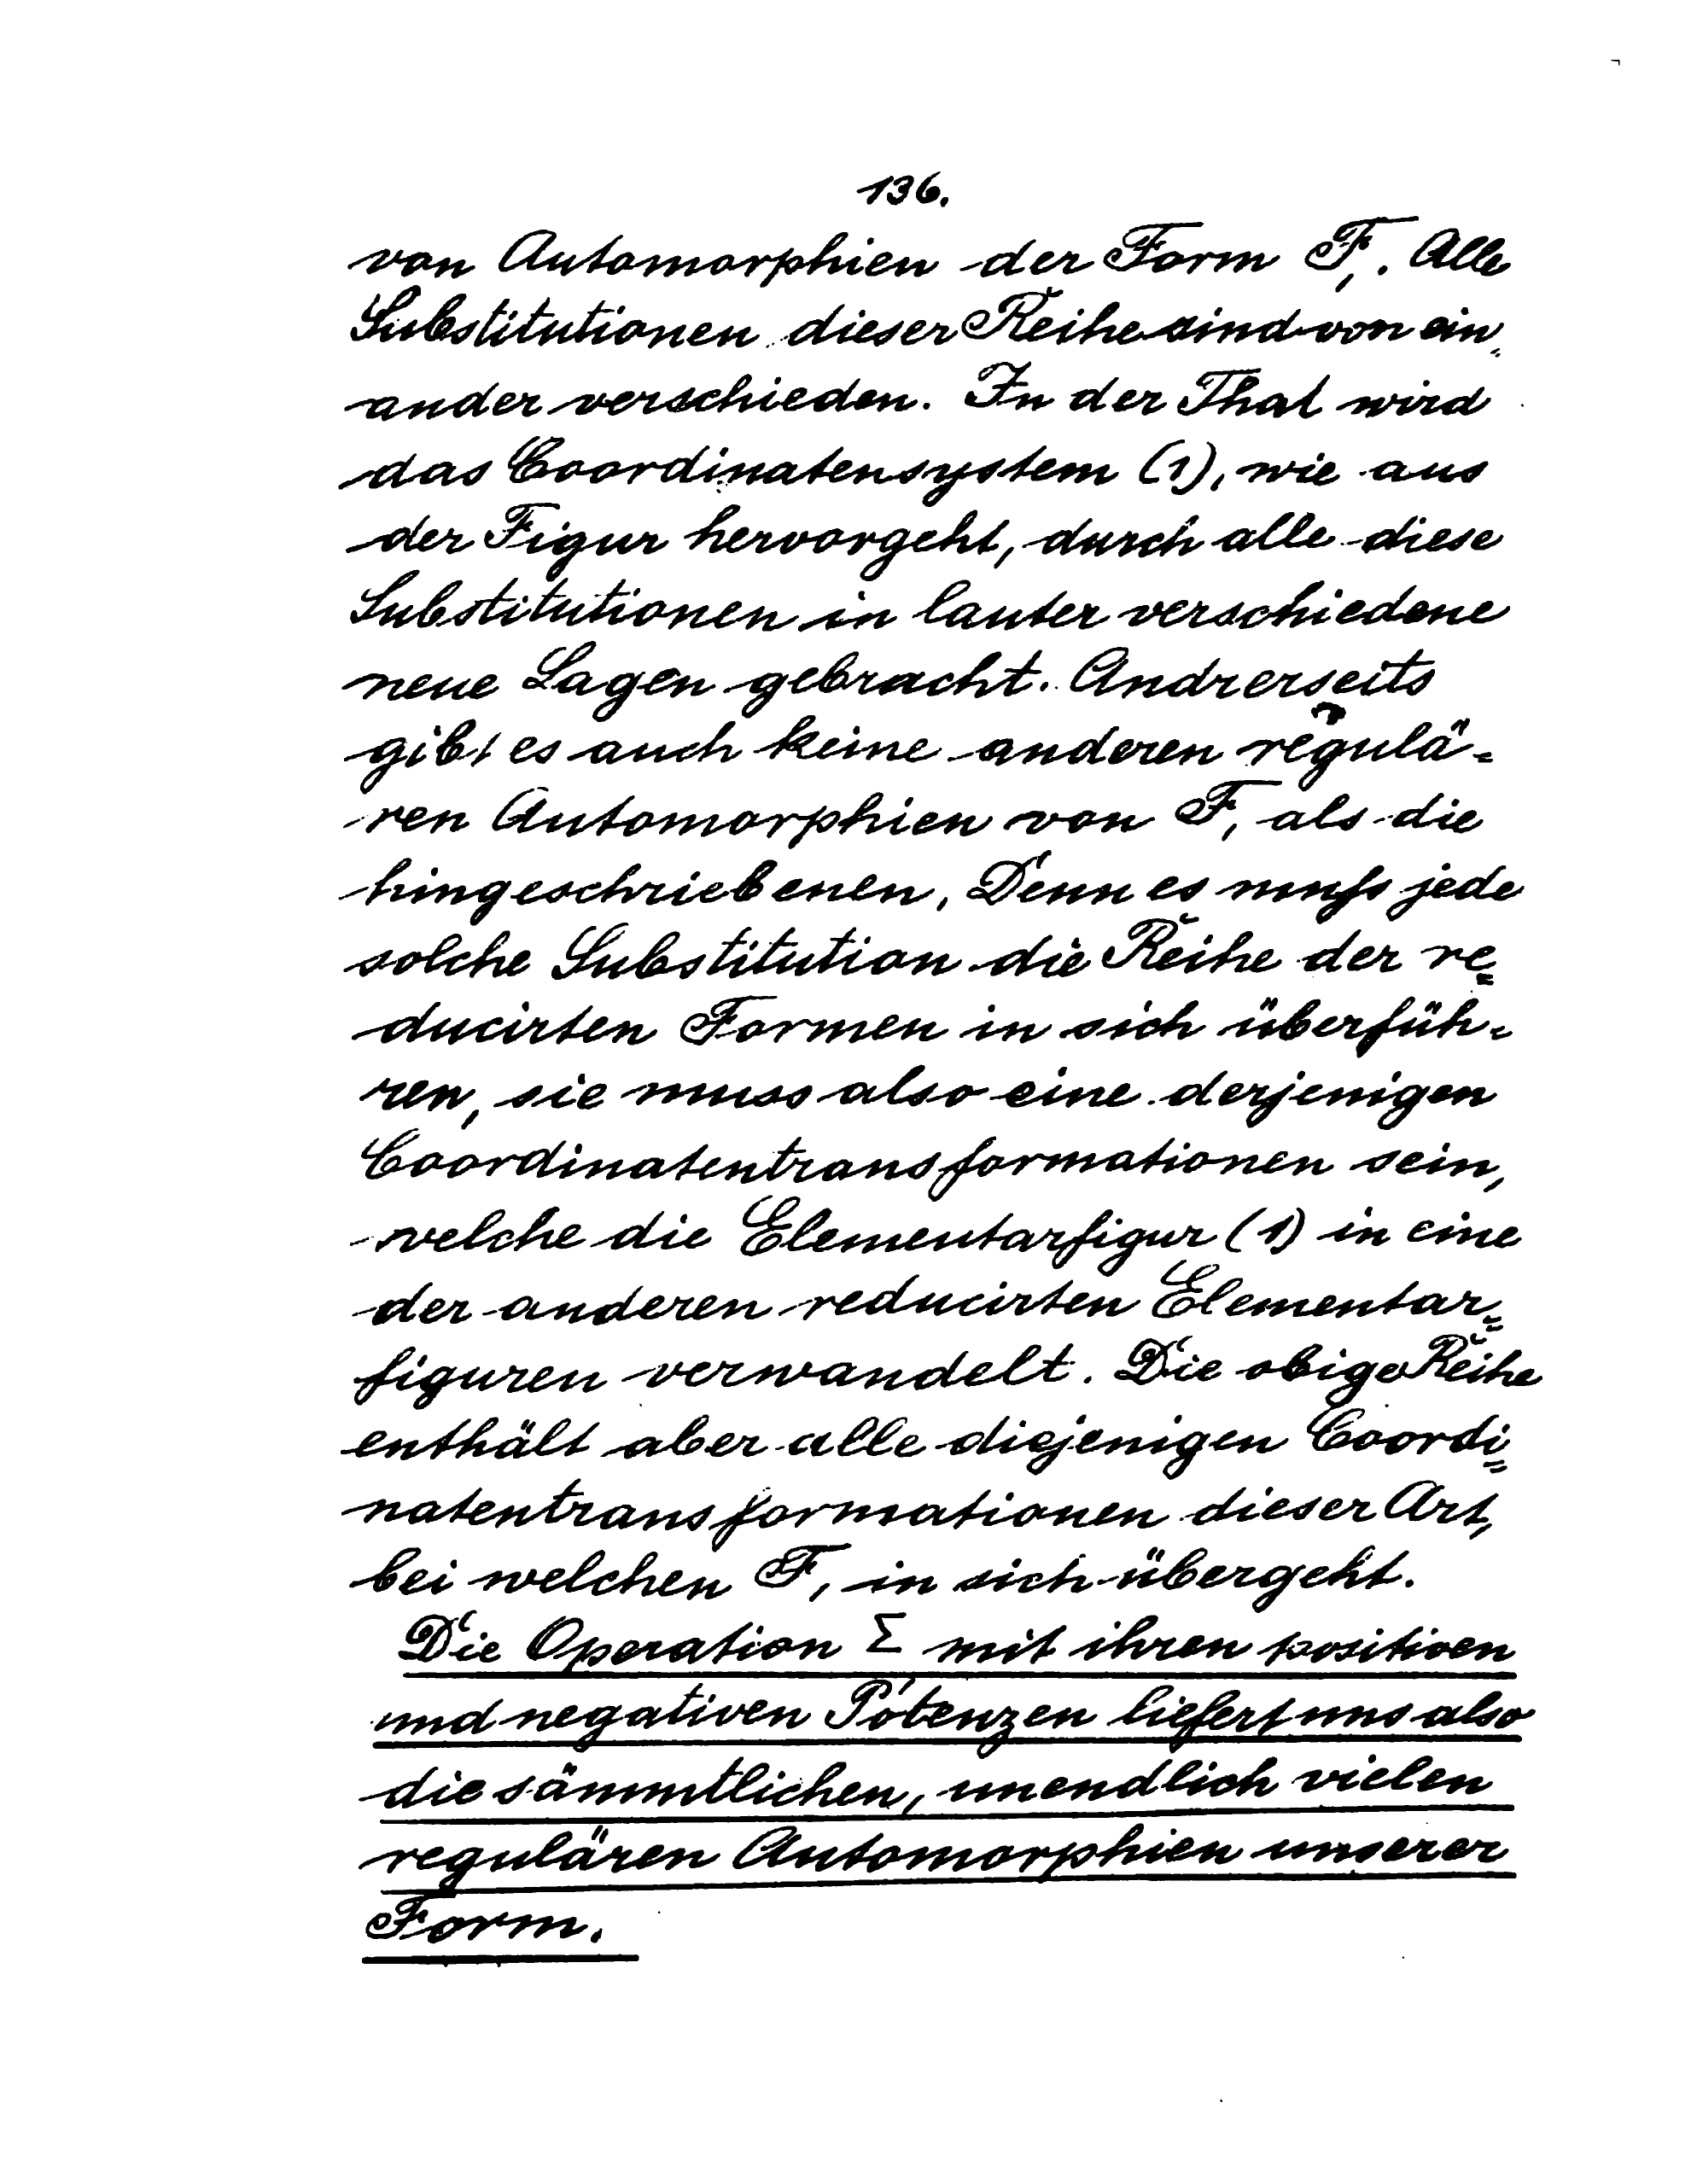 136.
von Automorphien der Form F₁. Alle
Substitutionen dieser Reihe sind von ein=
ander verschieden. In der That wird
das Coordinatensystem (1), wie aus
der Figur hervorgeht, durch alle diese
Substitutionen in lauter verschiedene
neue Lagen gebracht. Andrerseits
gibt es auch keine anderen regulä=
ren Automorphien von F₁ als die
hingeschriebenen. Denn es muſs jede
solche Substitution die Reihe der re=
ducirten Formen in sich überfüh=
ren, sie muss also eine derjenigen
Coordinatentransformationen sein,
welche die Elementarfigur (1) in eine
der anderen reducirten Elementar=
figuren verwandelt. Die obige Reihe
enthält aber alle diejenigen Coordi=
natentransformationen dieser Art,
bei welchen F₁ in sich übergeht.
Die Operation Σ mit ihren positiven
und negativen Potenzen liefert uns also
die sämmtlichen, unendlich vielen
regulären Automorphien unserer
Form.